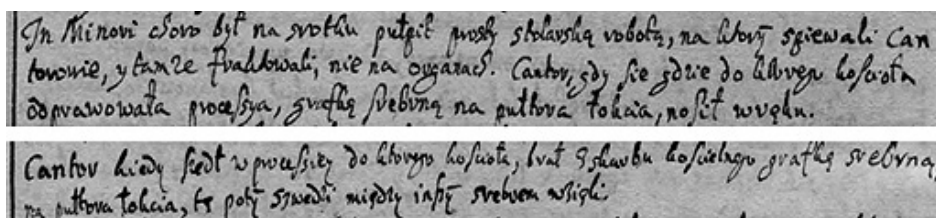 In Minori choro był na srotku pulpit prosty stolarską robotą, na ktorÿ spiewali Can
torowie, y tamże traktowali, nie na organach. Cantor, gdy sie gdzie do ktorego kosciola
odprawowała processya, grafkę srebrną na pułtora łokcia, nosił w ręku.
Cantor kiedy szedł w processiey do ktorego kosciola, brał z skarbu koscielnego grafkę srebrną,
na pułtora łokcia, tę potÿ szwedzi między inszÿ srebrem wzięli.